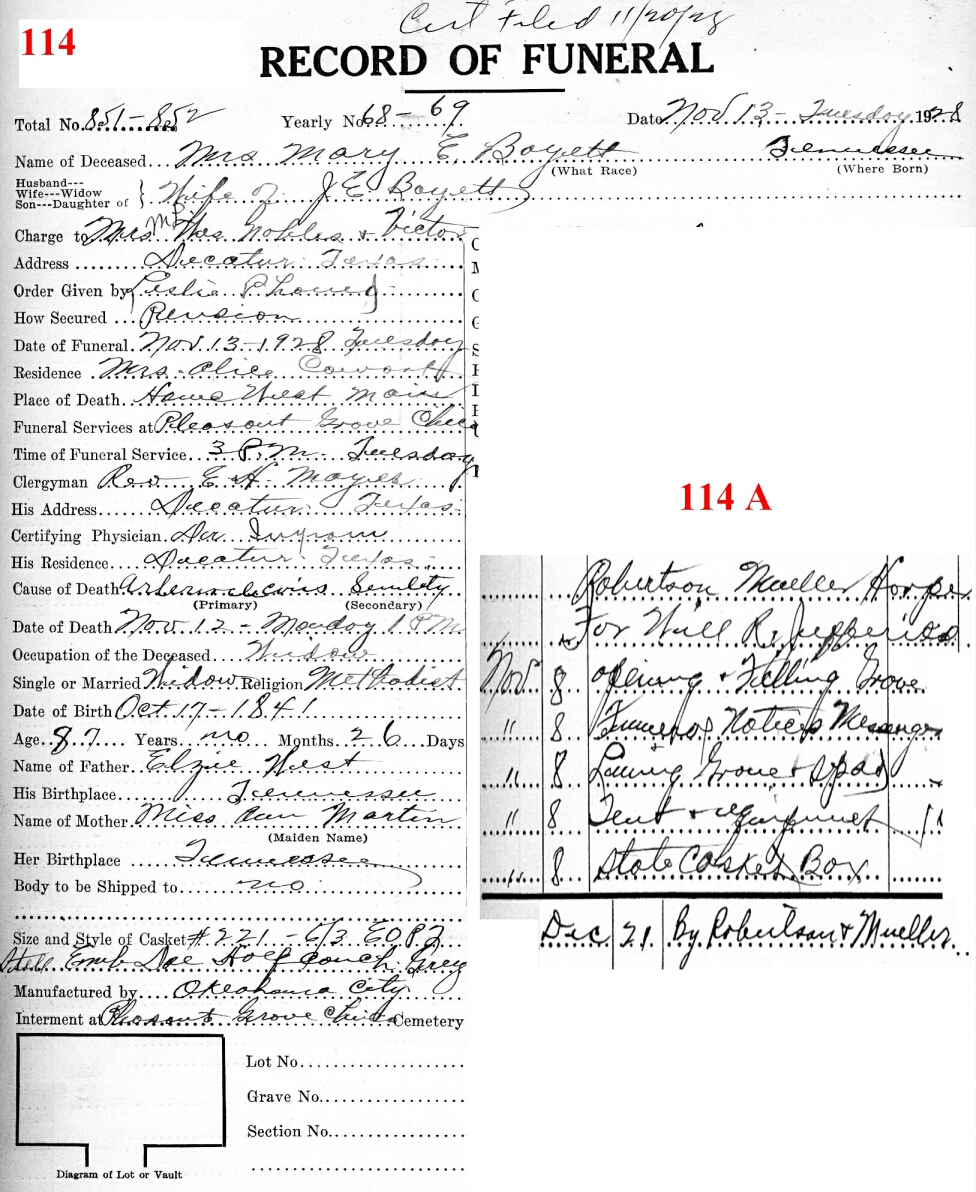 Cert Filed 11/20/28
114
RECORD OF FUNERAL
Total No. 851-852 Yearly No. 68-69 Date Nov 13 - Tuesday 1928
Name of Deceased Mrs Mary E. Boyett Tennessee
(What Race) (Where Born)
Husband---
Wife---Widow
Son---Daughter of } Wife of J. E. Boyett
Charge to Mrs Nobles & Victor
Address Decatur Texas
Order Given by Leslie P.
How Secured
Date of Funeral Nov. 13-1928 Tuesday
Residence Mrs. Alice
Place of Death Home West Main
Funeral Services at Pleasant Grove
Time of Funeral Service 3 P.M. Tuesday
Clergyman Rev. E. H.
His Address Decatur Texas
Certifying Physician Dr. Ingram
His Residence Decatur Texas
Cause of Death Senility
(Primary) (Secondary)
Date of Death Nov 12 - Monday 1 PM
Occupation of the Deceased Widow
Single or Married Widow Religion Methodist
Date of Birth Oct. 17-1841
Age 87 Years no Months 26 Days
Name of Father Elzie West
His Birthplace Tennessee
Name of Mother Miss Ann Martin
(Maiden Name)
Her Birthplace Tennessee
Body to be Shipped to no
Size and Style of Casket # 221 - 6/3
Half Couch Grey
Manufactured by Oklahoma City
Interment at Pleasant Grove Cemetery
Lot No.
Grave No.
Section No.
Diagram of Lot or Vault
114 A
Robertson Mueller Harper
For Will R.
Nov 8 opening & Filling Grave
" 8 Funeral Notices
" 8 Lining Grave &
" 8 Tent &
" 8 State Casket & Box
Dec 21 By Robertson & Mueller